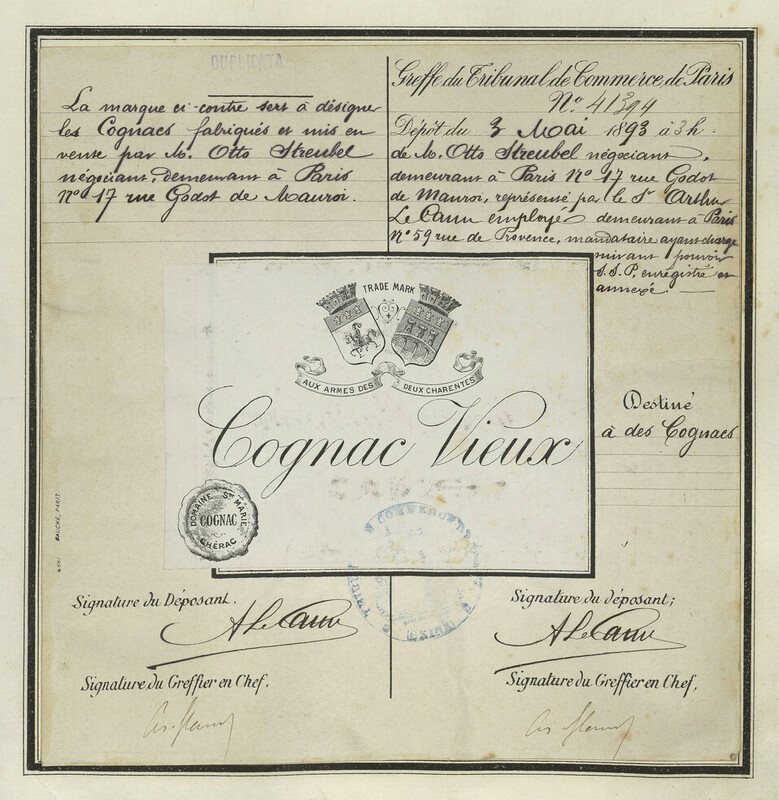 DUPLICATA
La marque ci-contre sert à désigner
les Cognacs fabriqués et mis en
vente par M. Otto Streubel
négociant, demeurant à Paris
N° 17 rue Godot de Mauroi.
Greffe du Tribunal de Commerce, de Paris
N° 41394
Dépôt du 3 Mai 1893 à 3h.
de M. Otto Streubel négociant,
demeurant à Paris N° 17 rue Godot
de Mauroi, représenté par le Sr Arthur
Le Cann employé demeurant à Paris
N° 59 rue de Provence, mandataire ayant charge
suivant pouvoir
S.S.P. enregistré et
annexé.
TRADE MARK
AUX ARMES DES DEUX CHARENTES
Cognac Vieux
DOMAINE STE MARIE
COGNAC
CHÉRAC
Destiné
à des Cognacs
BAUCHE, PARIS
COMMERCE DE
Signature du Déposant.
A Le Cann
Signature du Greffier en Chef.
Signature du déposant;
A Le Cann
Signature du Greffier en Chef.